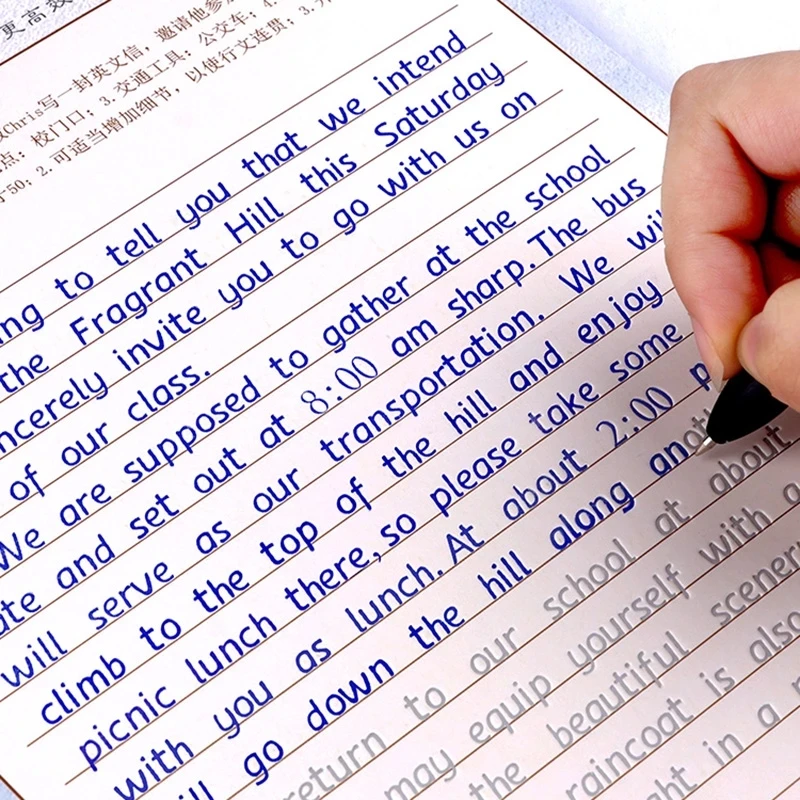 更高效
Chris写一封英文信，邀请他参
点：校门口；3.交通工具：公交车；4.
50；2.可适当增加细节，以使行文连贯；3.
ng to tell you that we intend
the Fragrant Hill this Saturday
ncerely invite you to go with us on
of our class.
We are supposed to gather at the school
ate and set out at 8:00 am sharp. The bus
will serve as our transportation. We wil
climb to the top of the hill and enjoy
picnic lunch there, so please take some
with you as lunch. At about 2:00 p
ill go down the hill along anoth
return to our school at about
may equip yourself with a
the beautiful scener
raincoat is also
ght in a